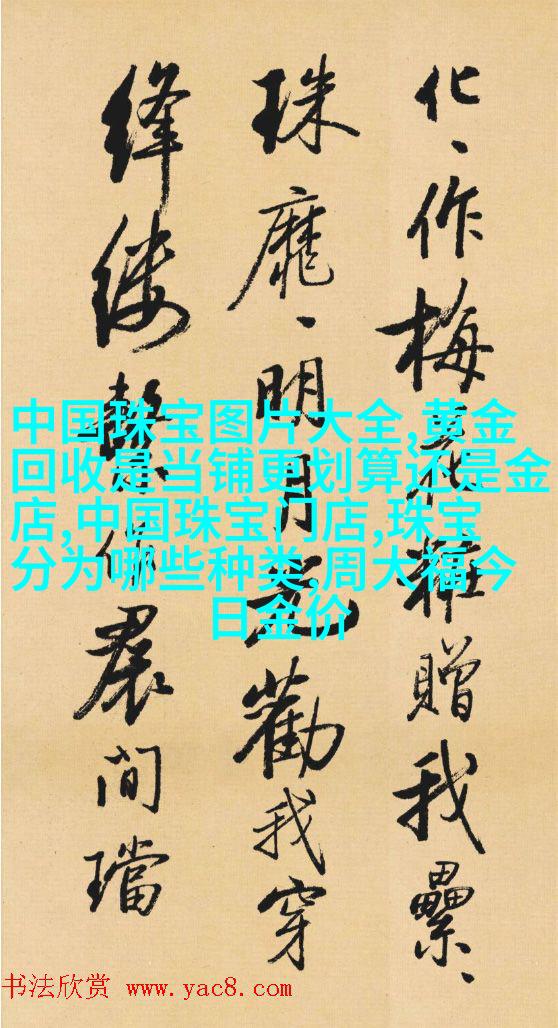 化、作梅花糚贈我纍、
珠靡、明月光勸我穿
絳縷繫你裠间璫
中国珠宝图片大全,黄金
回收是当铺更划算还是金
店,中国珠宝门店,珠宝
分为哪些种类,周大福今
日金价
书法欣赏 www.yac8.com